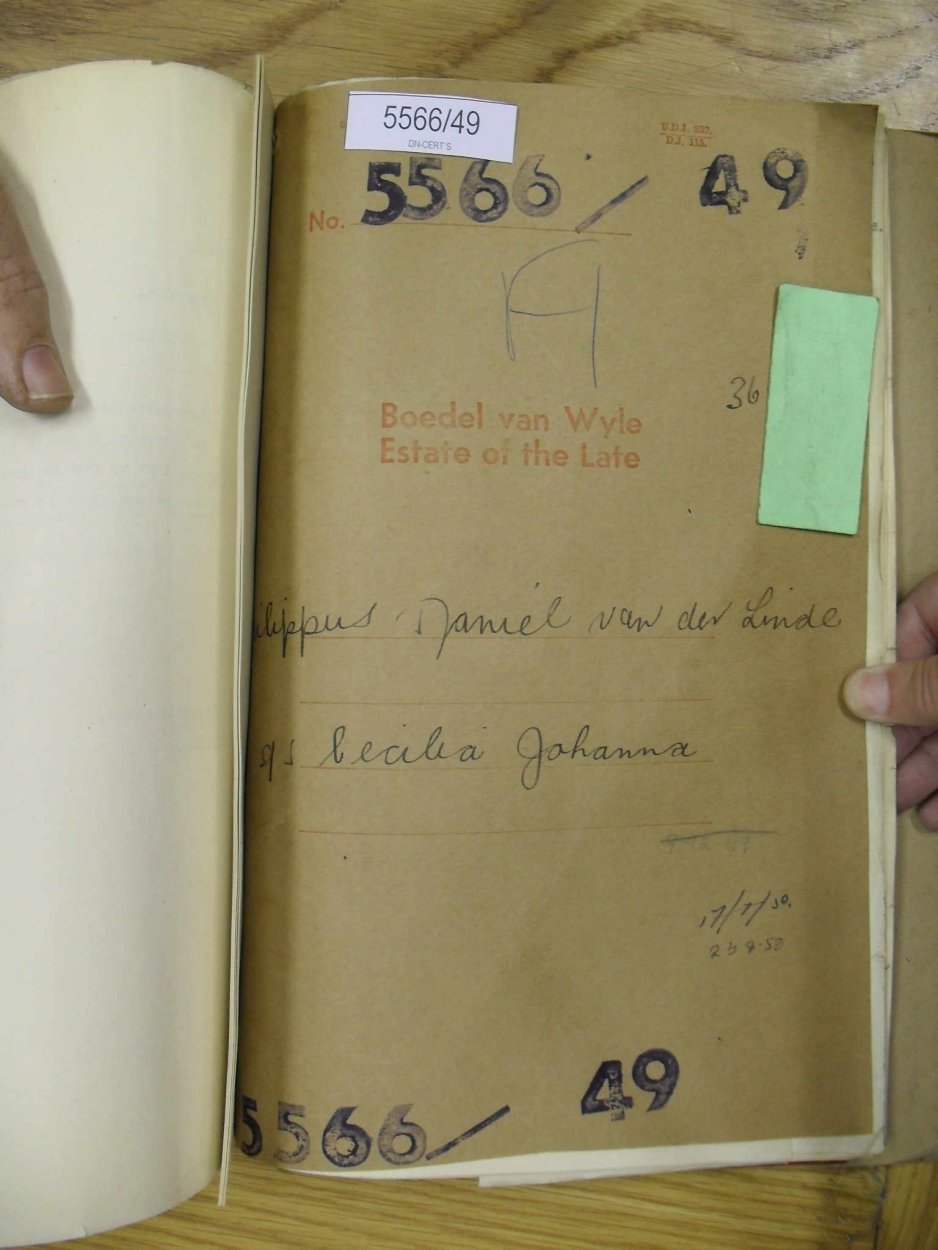 5566/49
DN-CERT'S
U.D.J. 257.
D.J. 115.
No. 5566 / 49
36
Boedel van Wyle
Estate of the Late
ilippus Daniel van der Linde
gs Cecilia Johanna
17/7/50.
5566/ 49